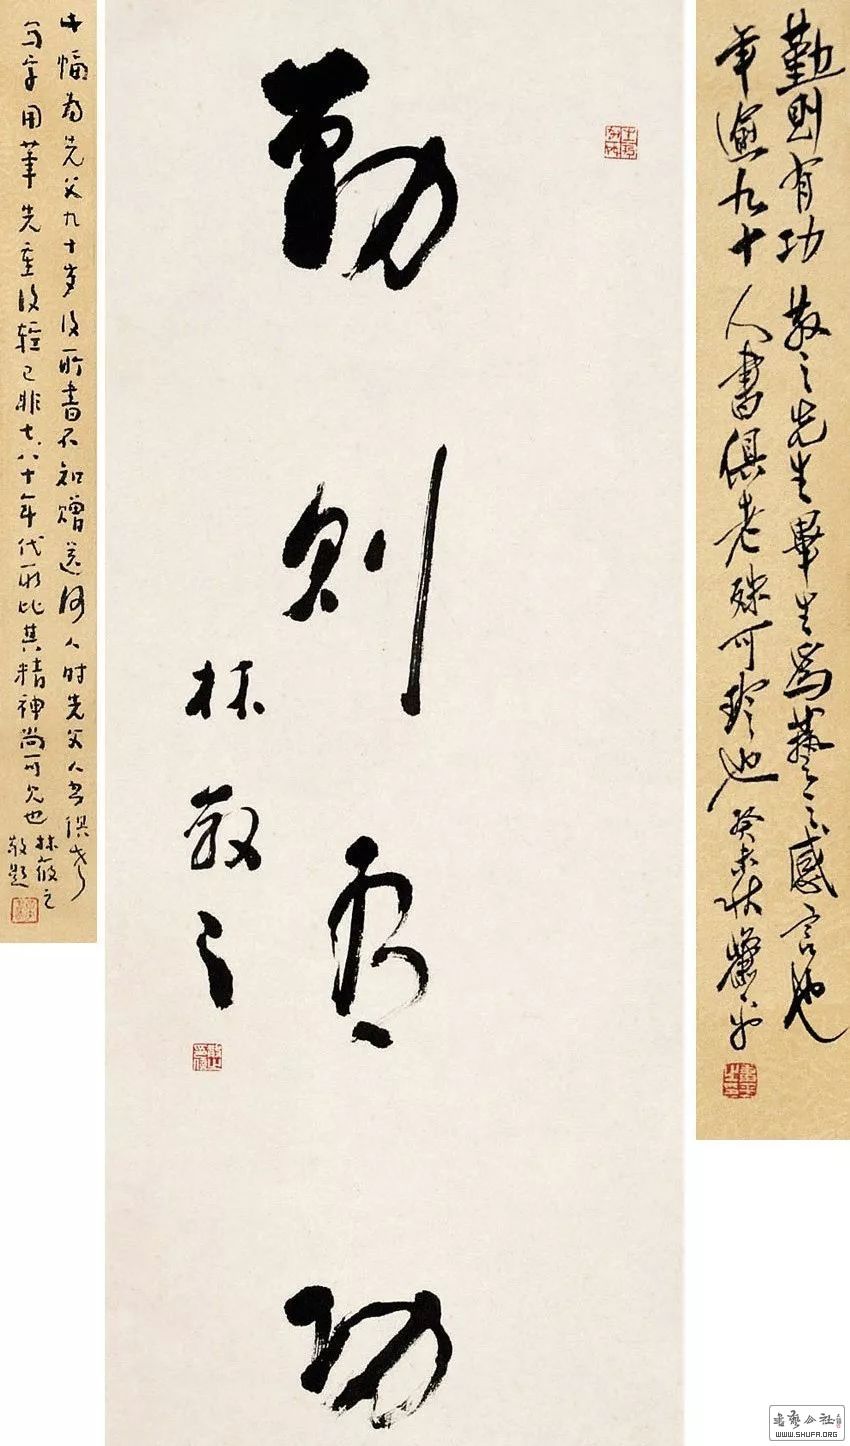 勤則有功 散之先生畢生為藝之感言也
年逾九十人書俱老殊可珍也 癸未秋 蕭平
勤則有功
林散之
此幅为先父九十岁后所書不知赠送何人时先父人书俱老
写字用筆先重后轻已非七八十年代所比其精神尚可见也 林筱之
敬题
書藝公社
WWW.SHUFA.ORG